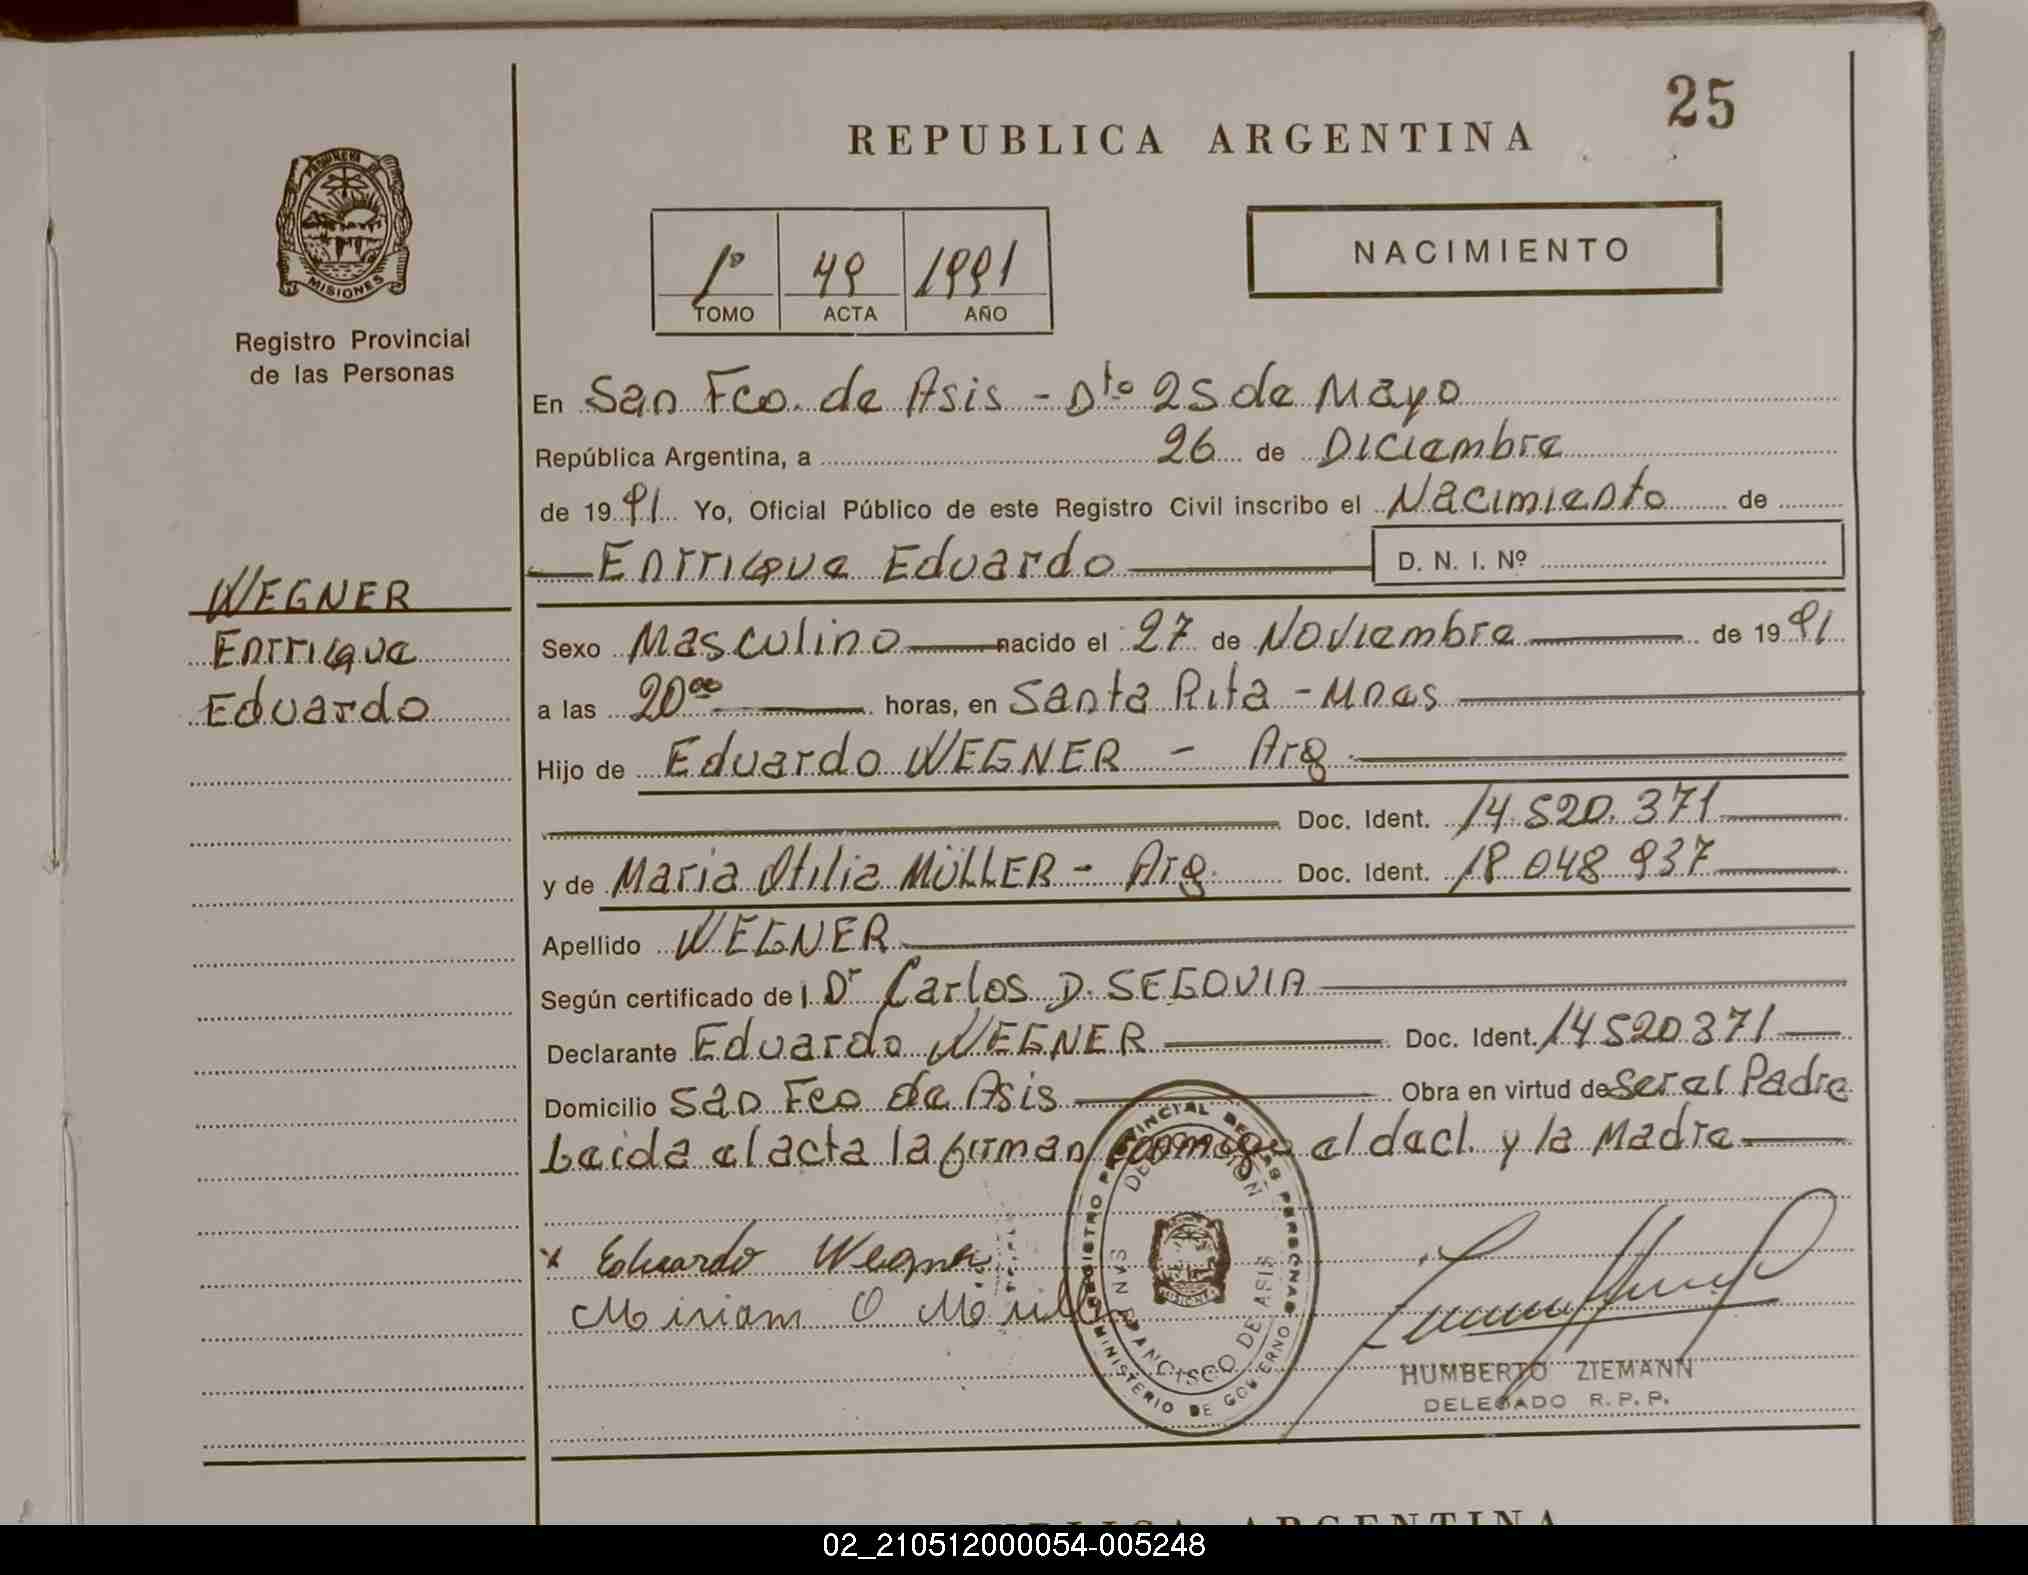 25
REPUBLICA ARGENTINA
PROVINCIA DE
MISIONES
Registro Provincial
de las Personas
1º 49 1991
TOMO ACTA AÑO
NACIMIENTO
En San Fco. de Asis - Dto 25 de Mayo
República Argentina, a 26 de Diciembre
de 19 91 Yo, Oficial Público de este Registro Civil inscribo el Nacimiento de
Enrrique Eduardo D. N. I. Nº
WEGNER
Enrrique
Eduardo
Sexo Masculino nacido el 27 de Noviembre de 19 91
a las 20 00 horas, en Santa Rita - Mnes
Hijo de Eduardo WEGNER - Arg
Doc. Ident. 14.520.371
y de Maria Otilia MÜLLER - Arg. Doc. Ident. 18 048 937
Apellido WEGNER
Según certificado del Dr Carlos D. SEGOVIA
Declarante Eduardo WEGNER Doc. Ident. 14520371
Domicilio San Fco de Asis Obra en virtud de Ser el Padre
Leida el acta la firman conmigo el decl. y la Madre
x Eduardo Wegner
Miriam O Mull
REGISTRO PROVINCIAL DE LAS PERSONAS
DELEGACION
SAN FRANCISCO DE ASIS
MINISTERIO DE GOBIERNO
HUMBERTO ZIEMANN
DELEGADO R.P.P.
REPUBLICA ARGENTINA
02_210512000054-005248